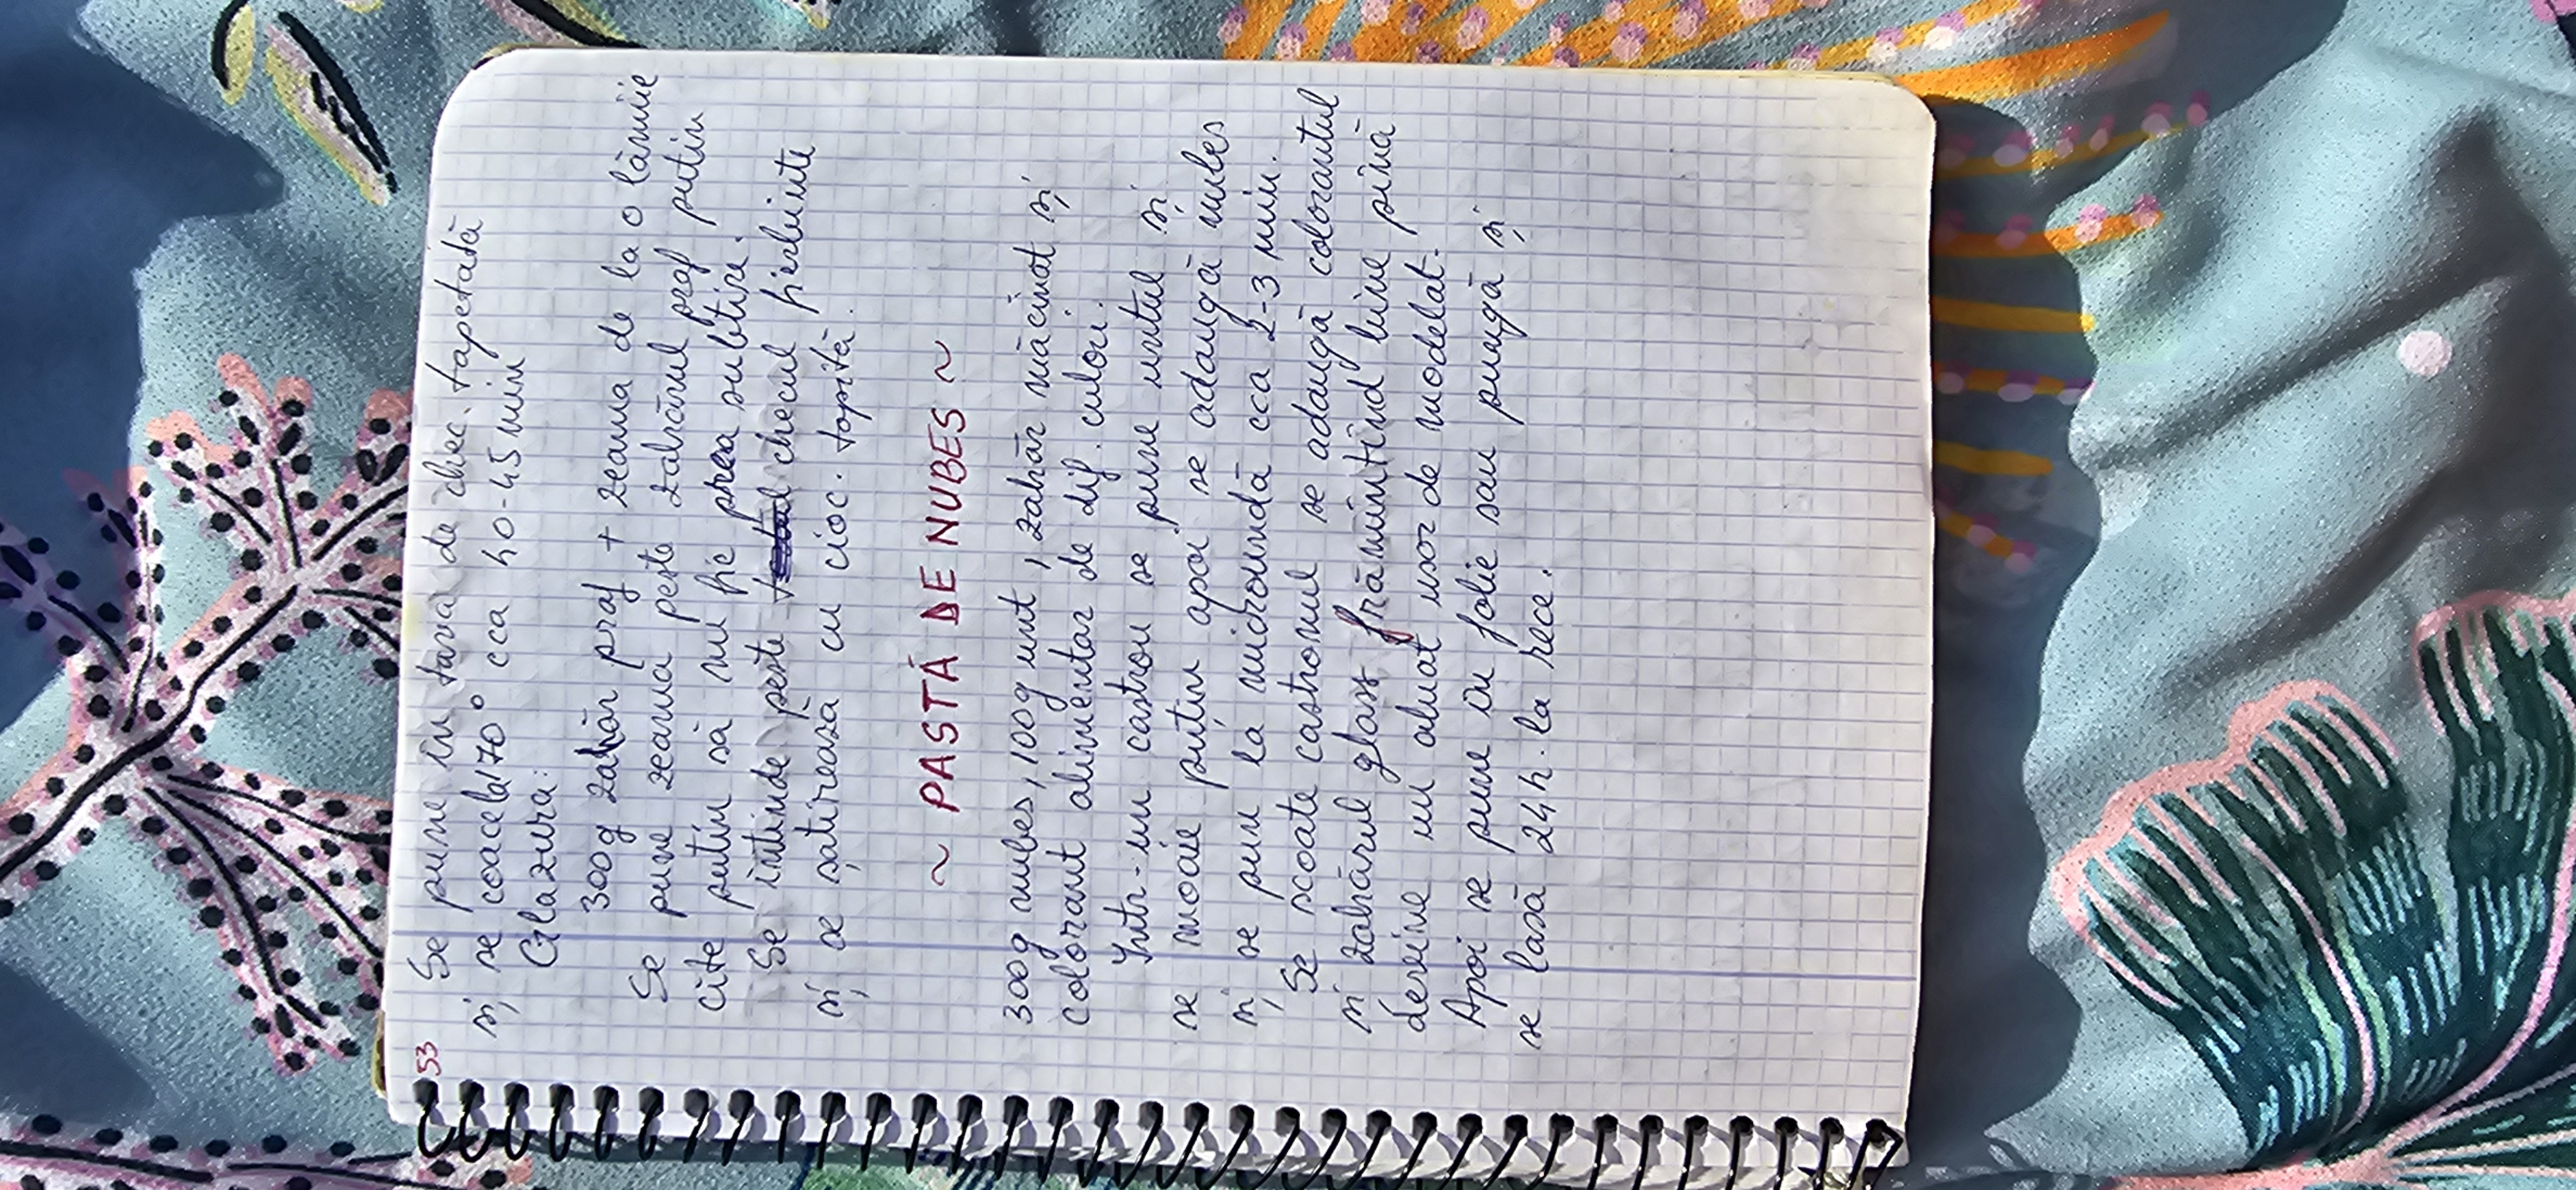 53
Se pune în tava de chec tapetată
și se coace la 170° cca 40-45 min
Glazura:
300g zahăr praf + zeama de la o lămîie
Se pune zeama peste zahărul praf putin
cite putin să nu fie prea subtire.
Se intinde peste checul fierbinte
și se șatirează cu cioc. topită.
~ PASTĂ DE NUBES ~
300g nubes, 100g unt, zahăr măcinat și
colorant alimentar de dif. culori.
Intr-un castron se pune untul si
se moaie puțin apoi se adaugă nubes
și se pun la microundă cca 2-3 min.
Se scoate castronul se adaugă colorantul
si zahărul glass frămîntînd bine pînă
devine un aluat usor de modelat.
Apoi se pune în folie sau pungă și
se lasă 24h. la rece.